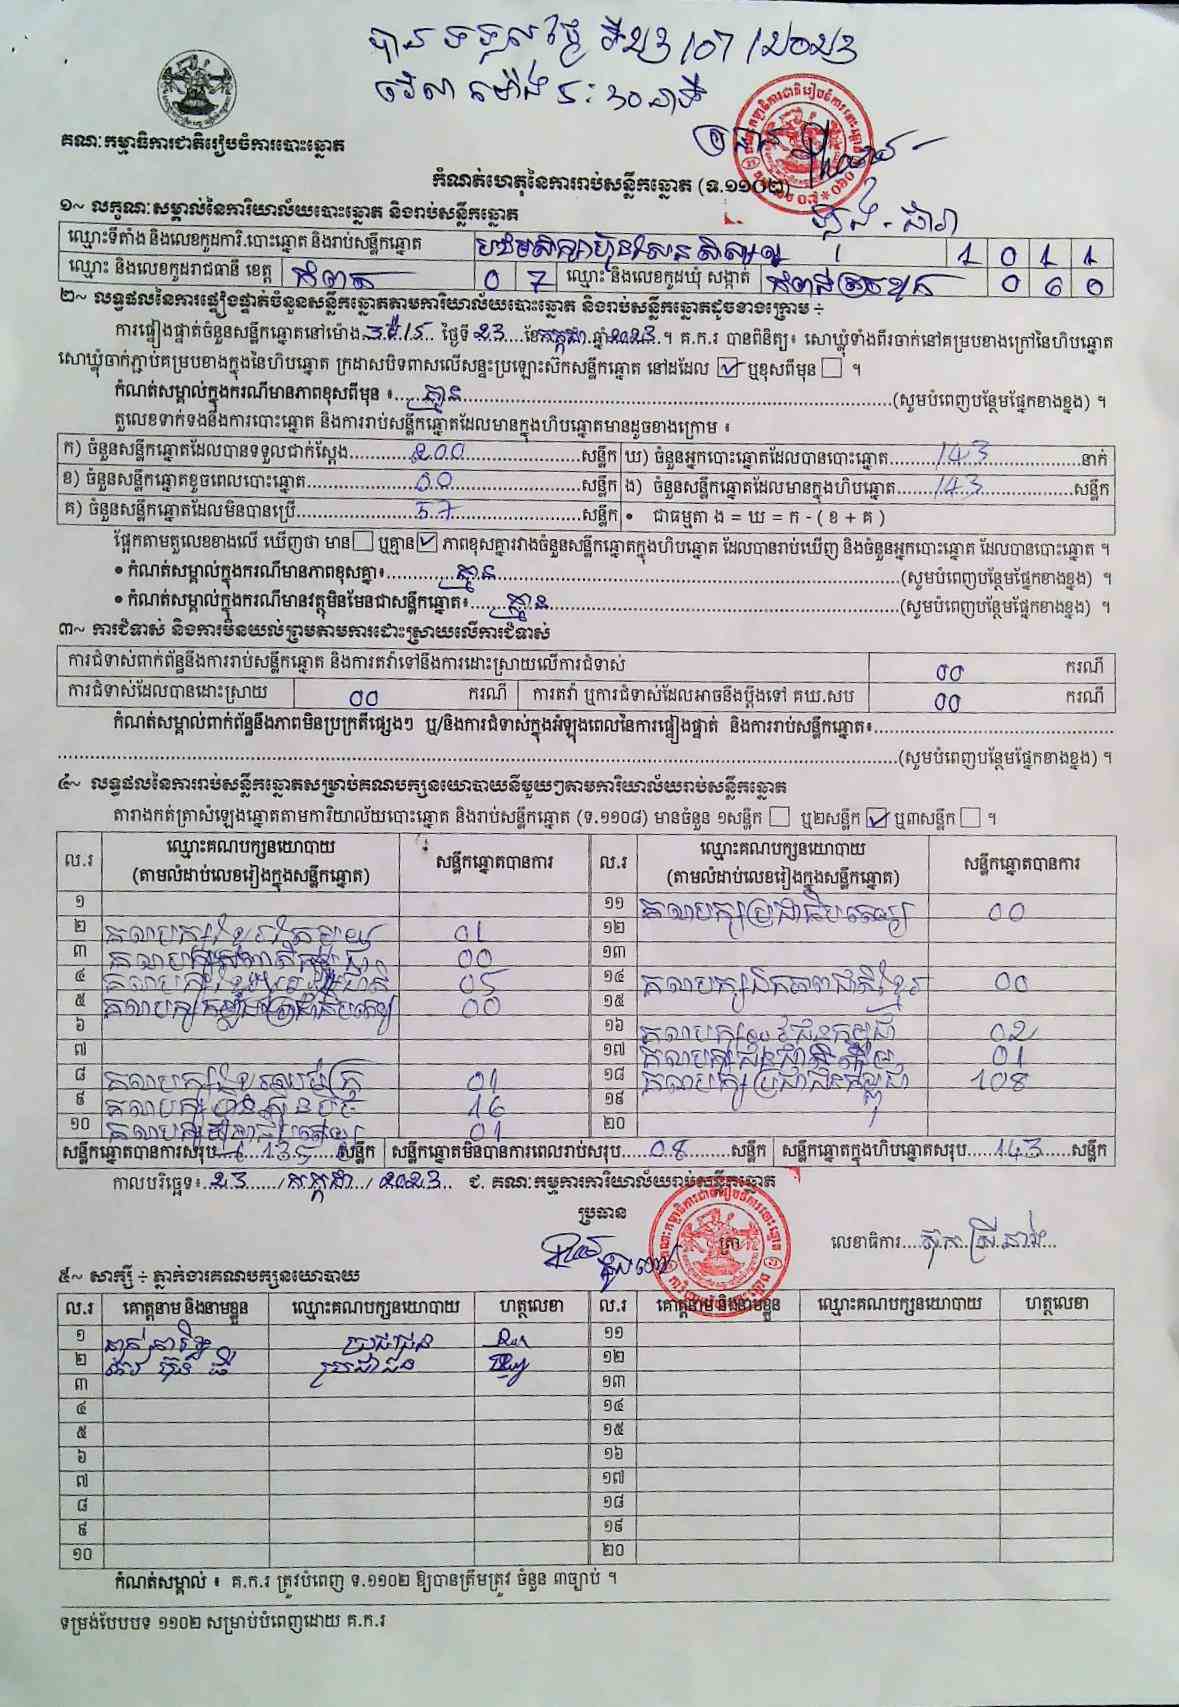 បានទទួលថ្ងៃ ទី២៣/០7/២០២៣
វេលា ម៉ោង ៩:៣០នាទី
គណៈកម្មាធិការជាតិរៀបចំការបោះឆ្នោត
ប្រធាន
កំណត់ហេតុនៃការរាប់សន្លឹកឆ្នោត (ទ.១១០២)
១~ លក្ខណៈសម្គាល់នៃការិយាល័យបោះឆ្នោត និងរាប់សន្លឹកឆ្នោត
ឈ្មោះទីតាំង និងលេខកូដការិ.បោះឆ្នោត និងរាប់សន្លឹកឆ្នោត 1 0 1 1
ឈ្មោះ និងលេខកូដរាជធានី ខេត្ត កំពត 0 7 ឈ្មោះ និងលេខកូដឃុំ សង្កាត់ 0 6 0
២~ លទ្ធផលនៃការផ្ទៀងផ្ទាត់ចំនួនសន្លឹកឆ្នោតតាមការិយាល័យបោះឆ្នោត និងរាប់សន្លឹកឆ្នោតដូចខាងក្រោម ÷
ការផ្ទៀងផ្ទាត់ចំនួនសន្លឹកឆ្នោតនៅម៉ោង ថ្ងៃទី 23 ខែកក្កដា ឆ្នាំ2023 ។ គ.ក.រ បានពិនិត្យ៖ សោឃ្លុំទាំងពីរចាក់នៅគម្របខាងក្រៅនៃហិបឆ្នោត
សោឃ្លុំចាក់ភ្ជាប់គម្របខាងក្នុងនៃហិបឆ្នោត ក្រដាសបិទពាសលើសន្ទះប្រឡោះស៊កសន្លឹកឆ្នោត នៅដដែល ☑ ឬខុសពីមុន ☐ ។
កំណត់សម្គាល់ក្នុងករណីមានភាពខុសពីមុន ៖ គ្មាន (សូមបំពេញបន្ថែមផ្នែកខាងខ្នង) ។
តួលេខទាក់ទងនឹងការបោះឆ្នោត និងការរាប់សន្លឹកឆ្នោតដែលមានក្នុងហិបឆ្នោតមានដូចខាងក្រោម ៖
ក) ចំនួនសន្លឹកឆ្នោតដែលបានទទួលជាក់ស្តែង 200 សន្លឹក ឃ) ចំនួនអ្នកបោះឆ្នោតដែលបានបោះឆ្នោត 143 នាក់
ខ) ចំនួនសន្លឹកឆ្នោតខូចពេលបោះឆ្នោត 00 សន្លឹក ង) ចំនួនសន្លឹកឆ្នោតដែលមានក្នុងហិបឆ្នោត 143 សន្លឹក
គ) ចំនួនសន្លឹកឆ្នោតដែលមិនបានប្រើ 57 សន្លឹក • ជាធម្មតា ង = ឃ = ក - ( ខ + គ )
ផ្អែកតាមតួលេខខាងលើ ឃើញថា មាន ☐ ឬគ្មាន ☑ ភាពខុសគ្នារវាងចំនួនសន្លឹកឆ្នោតក្នុងហិបឆ្នោត ដែលបានរាប់ឃើញ និងចំនួនអ្នកបោះឆ្នោត ដែលបានបោះឆ្នោត ។
• កំណត់សម្គាល់ក្នុងករណីមានភាពខុសគ្នា៖ គ្មាន (សូមបំពេញបន្ថែមផ្នែកខាងខ្នង) ។
• កំណត់សម្គាល់ក្នុងករណីមានវត្ថុមិនមែនជាសន្លឹកឆ្នោត៖ គ្មាន (សូមបំពេញបន្ថែមផ្នែកខាងខ្នង) ។
៣~ ការជំទាស់ និងការមិនយល់ព្រមតាមការដោះស្រាយលើការជំទាស់
ការជំទាស់ពាក់ព័ន្ធនឹងការរាប់សន្លឹកឆ្នោត និងការតវ៉ាទៅនឹងការដោះស្រាយលើការជំទាស់ 00 ករណី
ការជំទាស់ដែលបានដោះស្រាយ 00 ករណី ការតវ៉ា ឬការជំទាស់ដែលអាចនឹងប្តឹងទៅ គឃ.សប 00 ករណី
កំណត់សម្គាល់ពាក់ព័ន្ធនឹងភាពមិនប្រក្រតីផ្សេងៗ ឬ/និងការជំទាស់ក្នុងអំឡុងពេលនៃការផ្ទៀងផ្ទាត់ និងការរាប់សន្លឹកឆ្នោត៖
(សូមបំពេញបន្ថែមផ្នែកខាងខ្នង) ។
៤~ លទ្ធផលនៃការរាប់សន្លឹកឆ្នោតសម្រាប់គណបក្សនយោបាយនីមួយៗតាមការិយាល័យរាប់សន្លឹកឆ្នោត
តារាងកត់ត្រាសំឡេងឆ្នោតតាមការិយាល័យបោះឆ្នោត និងរាប់សន្លឹកឆ្នោត (ទ.១១០៨) មានចំនួន ១សន្លឹក ☐ ឬ២សន្លឹក ☑ ឬ៣សន្លឹក ☐ ។
ល.រ ឈ្មោះគណបក្សនយោបាយ (តាមលំដាប់លេខរៀងក្នុងសន្លឹកឆ្នោត) សន្លឹកឆ្នោតបានការ ល.រ ឈ្មោះគណបក្សនយោបាយ (តាមលំដាប់លេខរៀងក្នុងសន្លឹកឆ្នោត) សន្លឹកឆ្នោតបានការ
១ ១១ គណបក្សប្រជាធិបតេយ្យ 00
២ គណបក្ស 01 ១២
៣ គណបក្ស 00 ១៣
៤ គណបក្ស 05 ១៤ គណបក្សឯកភាពជាតិខ្មែរ 00
៥ គណបក្ស 00 ១៥
៦ ១៦ គណបក្ស 02
៧ ១៧ គណបក្ស 01
៨ គណបក្ស 01 ១៨ គណបក្សប្រជាជនកម្ពុជា 108
៩ គណបក្សហ៊្វុនស៊ិនប៉ិច 16 ១៩
១០ គណបក្ស 01 ២០
សន្លឹកឆ្នោតបានការសរុប 135 សន្លឹក សន្លឹកឆ្នោតមិនបានការពេលរាប់សរុប 08 សន្លឹក សន្លឹកឆ្នោតក្នុងហិបឆ្នោតសរុប 143 សន្លឹក
កាលបរិច្ឆេទ៖ 23 / កក្កដា / 2023 ជ. គណៈកម្មការការិយាល័យរាប់សន្លឹកឆ្នោត
ប្រធាន
ត្រា
លេខាធិការ
៥~ សាក្សី ÷ ភ្នាក់ងារគណបក្សនយោបាយ
ល.រ គោត្តនាម និងនាមខ្លួន ឈ្មោះគណបក្សនយោបាយ ហត្ថលេខា ល.រ គោត្តនាម និងនាមខ្លួន ឈ្មោះគណបក្សនយោបាយ ហត្ថលេខា
១ ប្រជាជន ១១
២ ប្រជាជន ១២
៣ ១៣
៤ ១៤
៥ ១៥
៦ ១៦
៧ ១៧
៨ ១៨
៩ ១៩
១០ ២០
កំណត់សម្គាល់ ៖ គ.ក.រ ត្រូវបំពេញ ទ.១១០២ ឱ្យបានត្រឹមត្រូវ ចំនួន ៣ច្បាប់ ។
ទម្រង់បែបបទ ១១០២ សម្រាប់បំពេញដោយ គ.ក.រ